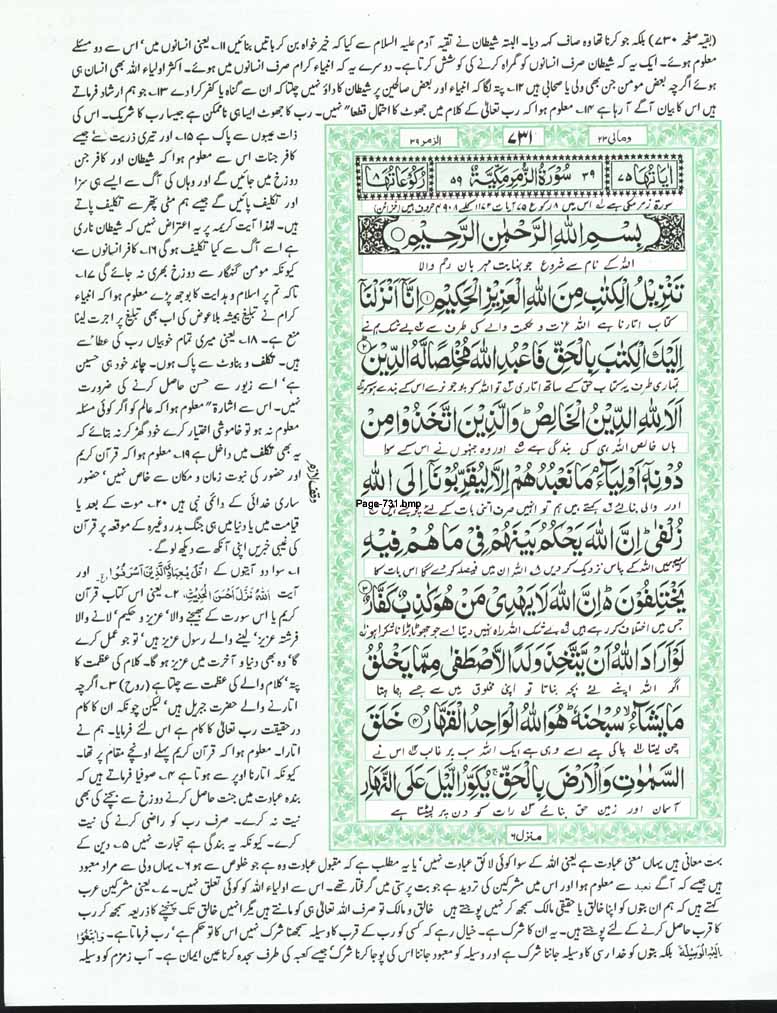 (بقیہ صفحہ ۷۳۰) بلکہ جو کرنا تھا وہ صاف کہہ دیا۔ البتہ شیطان نے تقیہ آدم علیہ السلام سے کیا کہ خیر خواہ بن کر باتیں بنائیں ۱۱۔ یعنی انسانوں میں' اس سے دو مسئلے
معلوم ہوئے۔ ایک یہ کہ شیطان صرف انسانوں کو گمراہ کرنے کی کوشش کرتا ہے۔ دوسرے یہ کہ انبیاء کرام صرف انسانوں میں ہوئے۔ اکثر اولیاء اللہ بھی انسان ہی
ہوئے اگرچہ بعض مومن جن بھی ولی یا صحابی ہیں ۱۲۔ پتہ لگا کہ انبیاء اور بعض صالحین پر شیطان کا داؤ نہیں چلتا کہ ان سے گناہ یا کفر کرا دے ۱۳۔ جو ہم ارشاد فرماتے
ہیں اس کا بیان آگے آ رہا ہے ۱۴۔ معلوم ہوا کہ رب تعالیٰ کے کلام میں جھوٹ کا احتمال قطعا" نہیں۔ رب کا جھوٹ ایسا ہی ناممکن ہے جیسا رب کا شریک۔ اس کی
ذات عیبوں سے پاک ہے ۱۵۔ اور تیری ذریت جیسے
کافر جنات اس سے معلوم ہوا کہ شیطان اور کافر جن
دوزخ میں جائیں گے اور وہاں کی آگ سے ایسے ہی سزا
اور تکلیف پائیں گے جیسے ہم مٹی پتھر سے تکلیف پاتے
ہیں۔ لہٰذا آیت کریمہ پر یہ اعتراض نہیں کہ شیطان ناری
ہے اسے آگ سے کیا تکلیف ہو گی ۱۶۔ کافر انسانوں سے،
کیونکہ مومن گنہگار سے دوزخ بھری نہ جائے گی ۱۷۔
تاکہ تم پر اسلام و ہدایت کا بوجھ پڑے معلوم ہوا کہ انبیاء
کرام نے تبلیغ ہمیشہ بلاعوض کی اب بھی تبلیغ پر اجرت لینا
منع ہے۔ ۱۸۔ یعنی میری تمام خوبیاں رب کی عطا سے
ہیں۔ تکلف و بناوٹ سے پاک ہوں۔ چاند خود ہی حسین
ہے' اسے زیور سے حسن حاصل کرنے کی ضرورت
نہیں۔ اس سے اشارۃ" معلوم ہوا کہ عالم کو اگر کوئی مسئلہ
معلوم نہ ہو تو خاموشی اختیار کرے خود گھڑ کر نہ بتائے کہ
یہ بھی تکلف میں داخل ہے ۱۹۔ معلوم ہوا کہ قرآن کریم
اور حضور کی نبوت زمان و مکان سے خاص نہیں' حضور
ساری خدائی کے دائمی نبی ہیں ۲۰۔ موت کے بعد یا
قیامت میں یا دنیا میں ہی جنگ بدر وغیرہ کے موقعہ پر قرآن
کی غیبی خبریں اپنی آنکھ سے دیکھ لو گے۔
۱۔ سوا دو آیتوں کے قُلْ يٰعِبَادِيَ الَّذِيْنَ اَسْرَفُوْا اور
آیت اَللّٰهُ نَزَّلَ اَحْسَنَ الْحَدِيْثِ ۲۔ یعنی اس کتاب قرآن
کریم یا اس سورت کے بھیجنے والا' عزیز و حکیم' لانے والا
فرشتہ عزیز' لینے والے رسول عزیز ہیں' تو جو عمل کرے
گا' وہ بھی دنیا و آخرت میں عزیز ہو گا۔ کلام کی عظمت کا
پتہ' کلام والے کی عظمت سے چلتا ہے (روح) ۳۔ اگرچہ
اتارنے والے حضرت جبریل ہیں' لیکن چونکہ ان کا کام
درحقیقت رب تعالیٰ کا کام ہے اس لئے فرمایا۔ ہم نے
اتارا۔ معلوم ہوا کہ قرآن کریم پہلے اونچے مقام پر تھا۔
کیونکہ اتارنا اوپر سے ہوتا ہے ۴۔ صوفیا فرماتے ہیں کہ
بندہ عبادت میں جنت حاصل کرنے دوزخ سے بچنے کی بھی
نیت نہ کرے۔ صرف رب کو راضی کرنے کی نیت
کرے۔ کیونکہ یہ بندگی ہے تجارت نہیں ۵۔ دین کے
ومالی ۲۳
۷۳۱
الزمر ۳۹
اٰيَاتُهَا ۷۵
۳۹ سُوْرَةُ الزُّمَرِ مَكِّيَّةٌ ۵۹
رُكُوْعَاتُهَا ۸
سورۃ زمر مکی ہے اس میں ۸ رکوع ۷۵ آیات ۱۱۷۲ کلمے ۴۹۰۸ حروف ہیں (خزائن)
بِسْمِ اللّٰهِ الرَّحْمٰنِ الرَّحِيْمِ
اللہ کے نام سے شروع جو نہایت مہربان رحم والا
تَنْزِيْلُ الْكِتٰبِ مِنَ اللّٰهِ الْعَزِيْزِ الْحَكِيْمِ ۱ اِنَّاۤ اَنْزَلْنَاۤ
کتاب اتارنا ہے اللہ عزت و حکمت والے کی طرف سے بے شک ہم نے
اِلَيْكَ الْكِتٰبَ بِالْحَقِّ فَاعْبُدِ اللّٰهَ مُخْلِصًا لَّهُ الدِّيْنَ ۲
تمہاری طرف یہ کتاب حق کے ساتھ اتاری تو اللہ کو پوجو نرے اس کے بندے ہو کر
اَلَا لِلّٰهِ الدِّيْنُ الْخَالِصُ ؕ وَالَّذِيْنَ اتَّخَذُوْا مِنْ
ہاں خالص اللہ ہی کی بندگی ہے اور وہ جنہوں نے اس کے سوا
دُوْنِهٖۤ اَوْلِيَآءَ ۘ مَا نَعْبُدُهُمْ اِلَّا لِيُقَرِّبُوْنَاۤ اِلَى اللّٰهِ
وقف لازم
اور والی بنا لئے کہتے ہیں ہم تو انہیں صرف اتنی بات کے لئے پوجتے ہیں
Page-731.bmp
زُلْفٰى ؕ اِنَّ اللّٰهَ يَحْكُمُ بَيْنَهُمْ فِيْ مَا هُمْ فِيْهِ
کہ یہ ہمیں اللہ کے پاس نزدیک کر دیں اللہ ان میں فیصلہ کر دے گا اس بات کا
يَخْتَلِفُوْنَ ؕ اِنَّ اللّٰهَ لَا يَهْدِيْ مَنْ هُوَ كٰذِبٌ كَفَّارٌ ۳
جس میں اختلاف کر رہے ہیں بے شک اللہ راہ نہیں دیتا اسے جو جھوٹا بڑا ناشکرا ہو
لَوْ اَرَادَ اللّٰهُ اَنْ يَّتَّخِذَ وَلَدًا لَّاصْطَفٰى مِمَّا يَخْلُقُ
اگر اللہ اپنے لئے بچہ بناتا تو اپنی مخلوق میں سے جسے چاہتا
مَا يَشَآءُ ۙ سُبْحٰنَهٗ ؕ هُوَ اللّٰهُ الْوَاحِدُ الْقَهَّارُ ۴ خَلَقَ
چن لیتا پاکی ہے اسے وہی ہے ایک اللہ سب پر غالب اس نے
السَّمٰوٰتِ وَالْاَرْضَ بِالْحَقِّ ۚ يُكَوِّرُ الَّيْلَ عَلَى النَّهَارِ
آسمان اور زمین حق بنائے رات کو دن پر لپیٹتا ہے
منزل ۶
بہت معانی ہیں یہاں معنی عبادت ہے یعنی اللہ کے سوا کوئی لائق عبادت نہیں' یا یہ مطلب ہے کہ مقبول عبادت وہ ہے جو خلوص سے ہو ۶۔ یہاں ولی سے مراد معبود
ہیں جیسے کہ آگے نعبد سے معلوم ہوا اور اس میں مشرکین کی تردید ہے جو بت پرستی میں گرفتار تھے۔ اس سے اولیاء اللہ کو کوئی تعلق نہیں۔ ۷۔ یعنی مشرکین عرب
کہتے ہیں کہ ہم ان بتوں کو اپنا خالق یا حقیقی مالک سمجھ کر نہیں پوجتے ہیں خالق و مالک تو صرف اللہ تعالیٰ ہی کو مانتے ہیں مگر انہیں خالق تک پہنچنے کا ذریعہ سمجھ کر رب
کا قرب حاصل کرنے کے لئے پوجتے ہیں۔ یہ ان کا شرک ہے۔ خیال رہے کہ کسی کو رب کے قرب کا وسیلہ سمجھنا شرک نہیں اس کا تو حکم ہے' رب فرماتا ہے۔ وَابْتَغُوْۤا
اِلَيْهِ الْوَسِيْلَةَ بلکہ بتوں کو خدا رسی کا وسیلہ جاننا شرک ہے اور وسیلہ کو معبود جاننا اس کی پوجا کرنا شرک' جیسے کعبہ کی طرف سجدہ کرنا عین ایمان ہے۔ آب زمزم کو وسیلہ